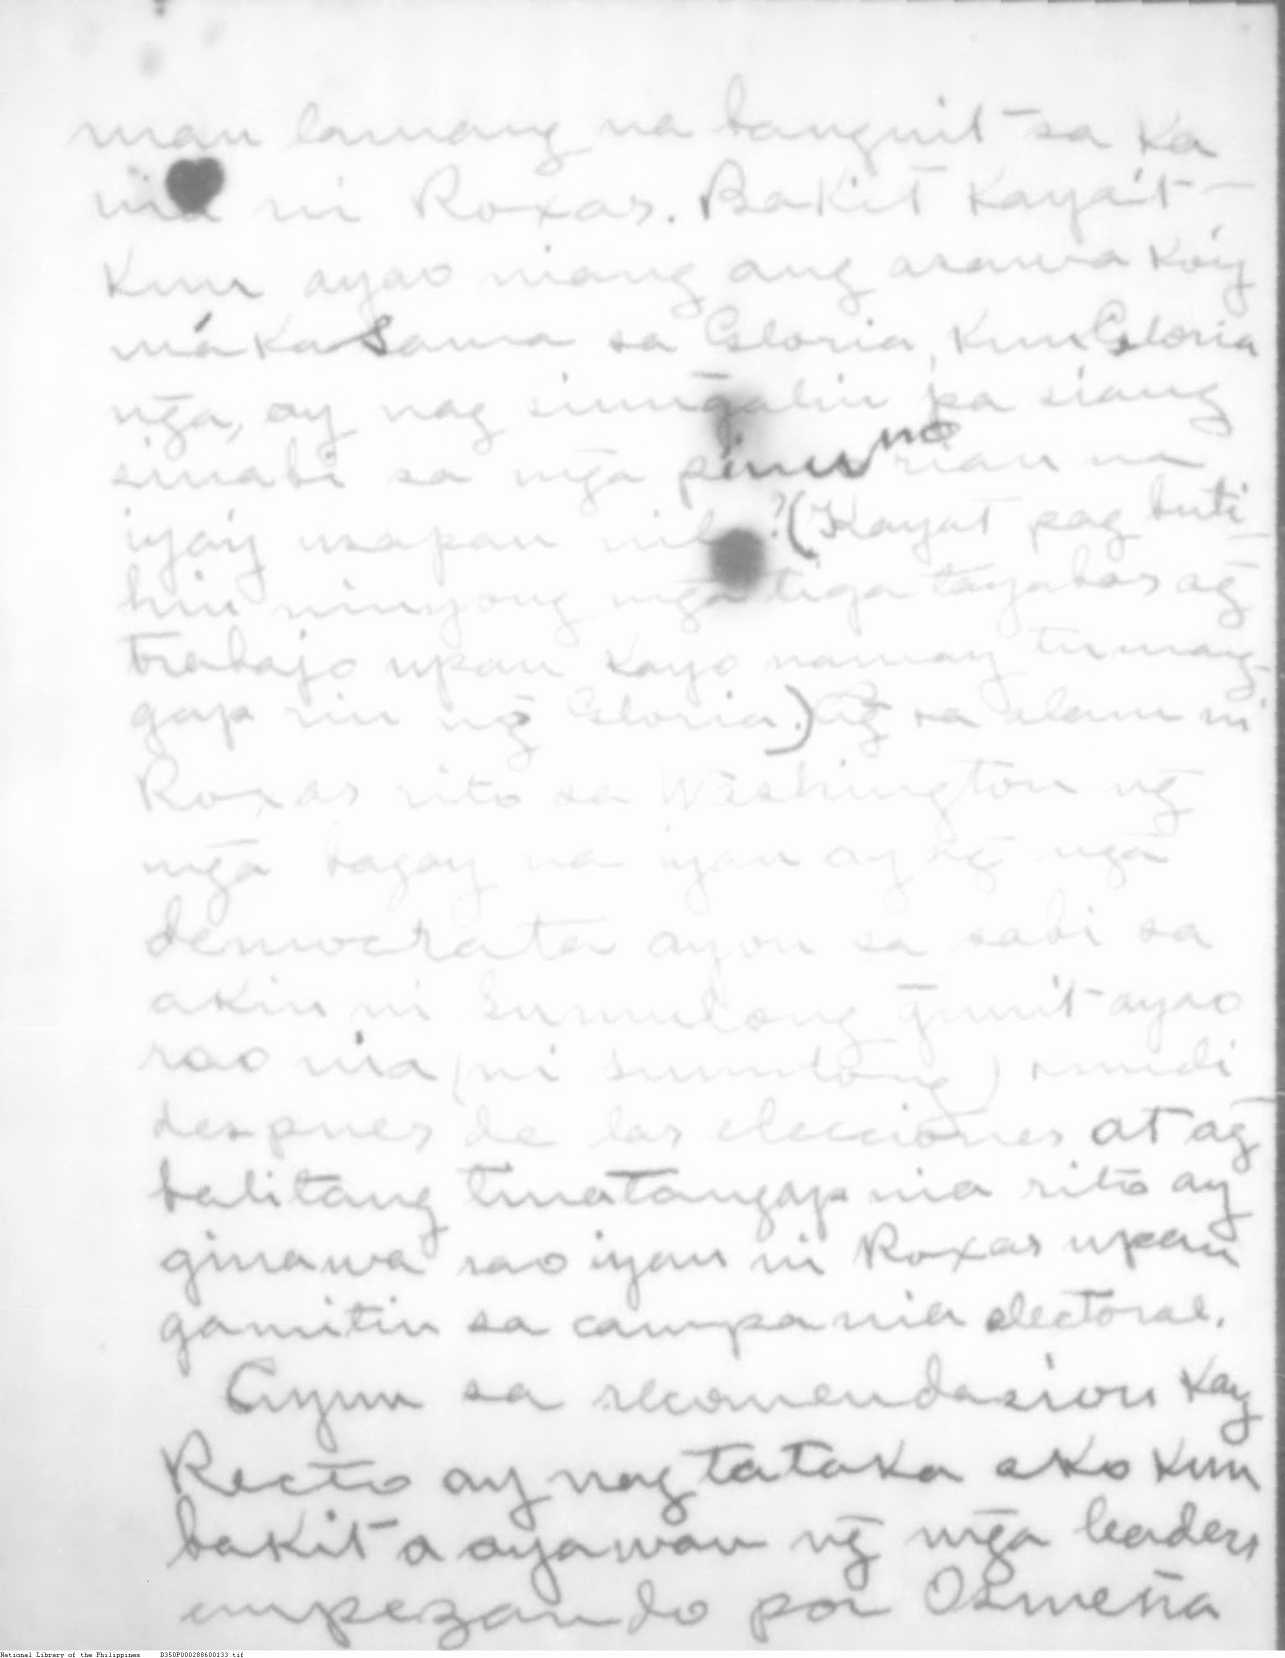 man lamang na banguit sa Ka
nia ni Roxas. Bakit Kaya't
Kun ayao niang ang asawa Ko'y
máKasama sa Gloria, Kun Gloria
ñga, ay nag siñgalin pa siang
sinabi sa mg̃a pinu no rian na
iya'y usapan nila?(Kayat pag buti
hin ninyong mg̃a tiga tayabas ag̃
trabajo upan Kayo naman ay tumang
gap rin ng̃ Gloria.) Ag̃ sa alam ni
Roxas rito sa Washington ng̃
mg̃a bagay na iyan ay ag̃ mg̃a
democrata ayon sa sabi sa
akin ni Sumulong g̃unit ayao
rao nia (ni Sumulong) umuli
despues de las elecciones at ag̃
balitang tinatangap nia rito ay
ginawa rao iyan ni Roxas upan
gamitin sa campania electoral.
Ayun sa recomendasion Kay
Recto ay nag tataKa aKo Kun
baKit a ayawan ng̃ mg̃a leaders
empezando por Osmeña
National Library of the Philippines D350P000288600133.tif